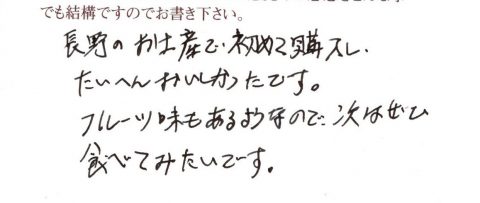 でも結構ですのでお書き下さい。
長野のお土産で初めて購入し、
たいへんおいしかったです。
フルーツ味もあるようなので、次はぜひ
食べてみたいです。